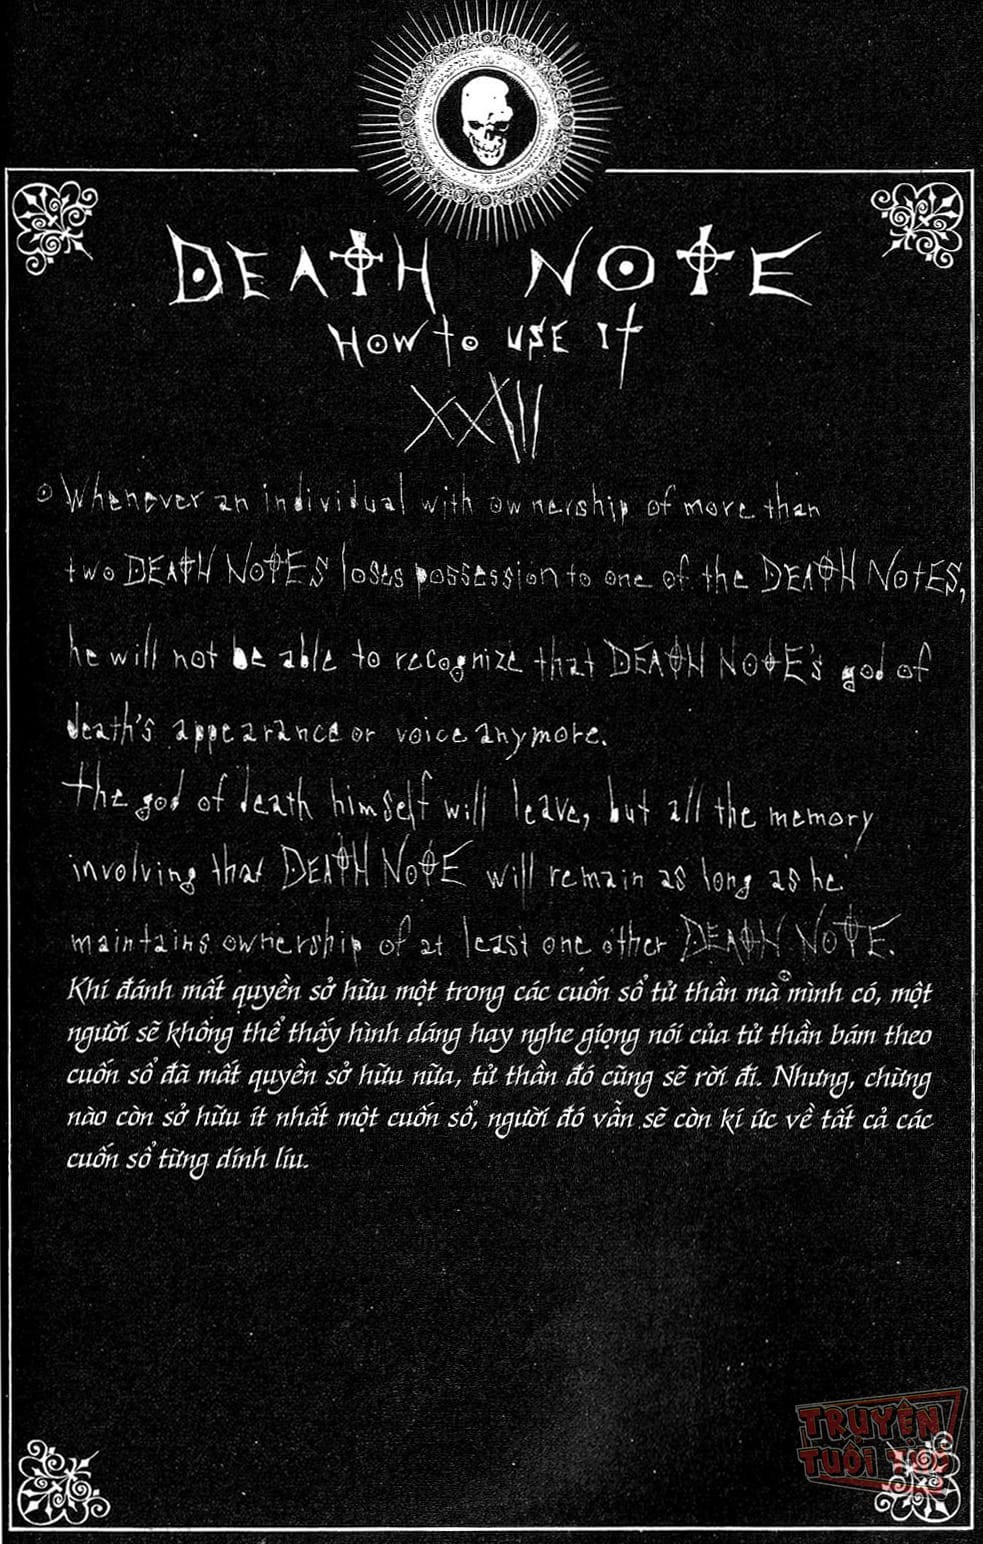 DEATH NOTE
HOW to USE It
XXIII
Whenever an individual with ownership of more than
two DEATH NOTES loses possession to one of the DEATH NOTES,
he will not be able to recognize that DEATH NOTE's god of
death's appearance or voice anymore.
the god of death himself will leave, but all the memory
involving that DEATH NOTE will remain as long as he
maintains ownership of at least one other DEATH NOTE.
Khi đánh mất quyền sở hữu một trong các cuốn sổ tử thần mà mình có, một
người sẽ không thể thấy hình dáng hay nghe giọng nói của tử thần bám theo
cuốn sổ đã mất quyền sở hữu nữa, tử thần đó cũng sẽ rời đi. Nhưng, chừng
nào còn sở hữu ít nhất một cuốn sổ, người đó vẫn sẽ còn kí ức về tất cả các
cuốn sổ từng dính líu.
TRUYỆN
TUỔI